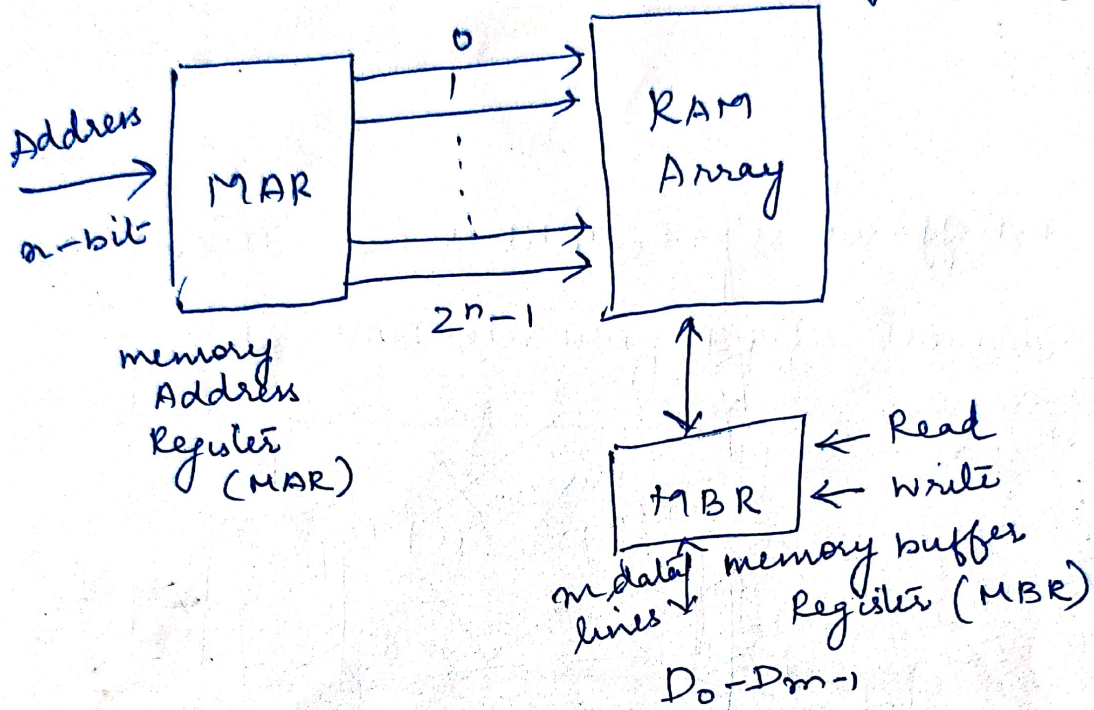 0
1
Address
n-bit
MAR
2ⁿ-1
RAM
Array
memory
Address
Register
(MAR)
MBR
← Read
← Write
m data
lines
memory buffer
Register (MBR)
D₀-Dm-1